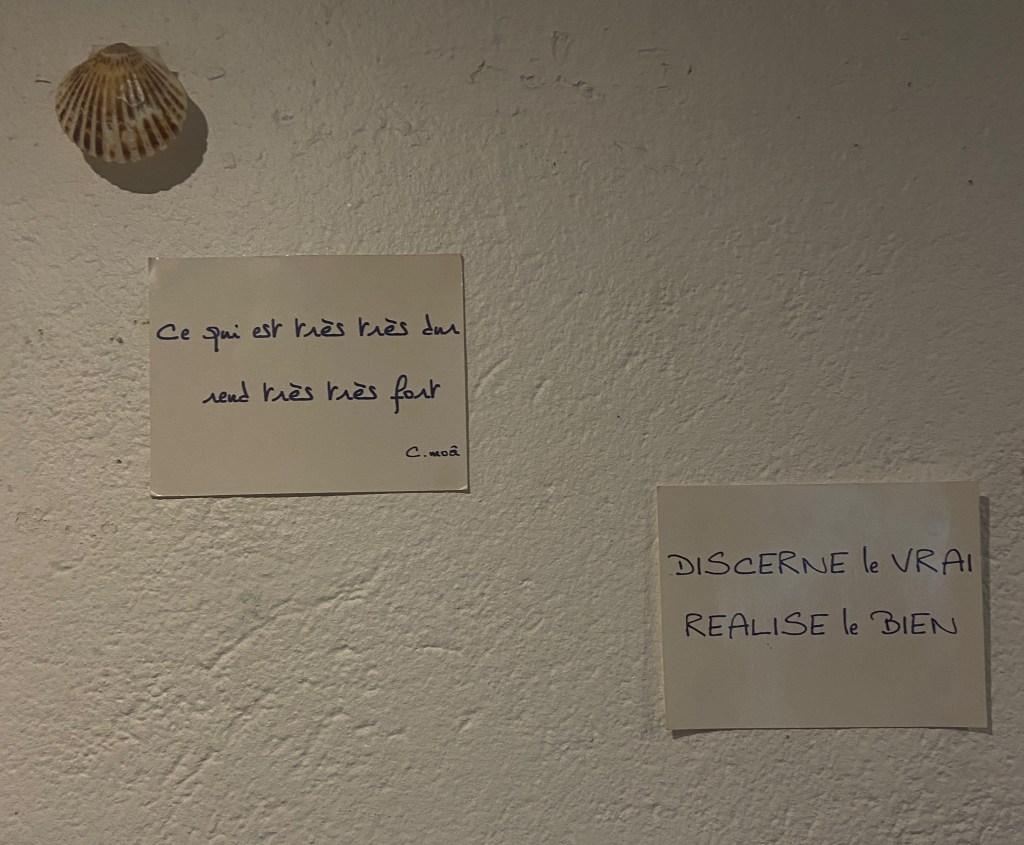 Ce qui est très très dur
rend très très fort
C.moâ
DISCERNE le VRAI
REALISE le BIEN